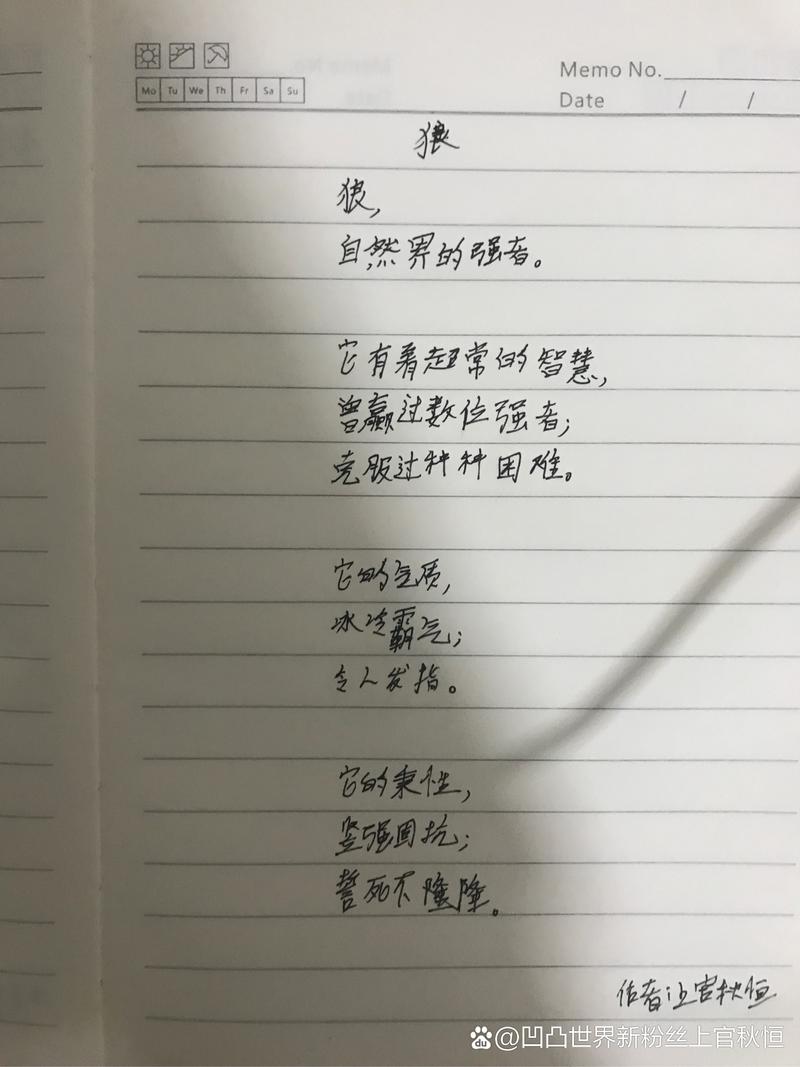 Memo No.
Mo Tu We Th Fr Sa Su
Date / /
狼
狼，
自然界的强者。
它有着超常的智慧，
曾赢过数位强者；
克服过种种困难。
它的气质，
冰冷霸气；
令人发指。
它的秉性，
坚强固抗；
誓死不
作者：上官秋恒
@凹凸世界新粉丝上官秋恒